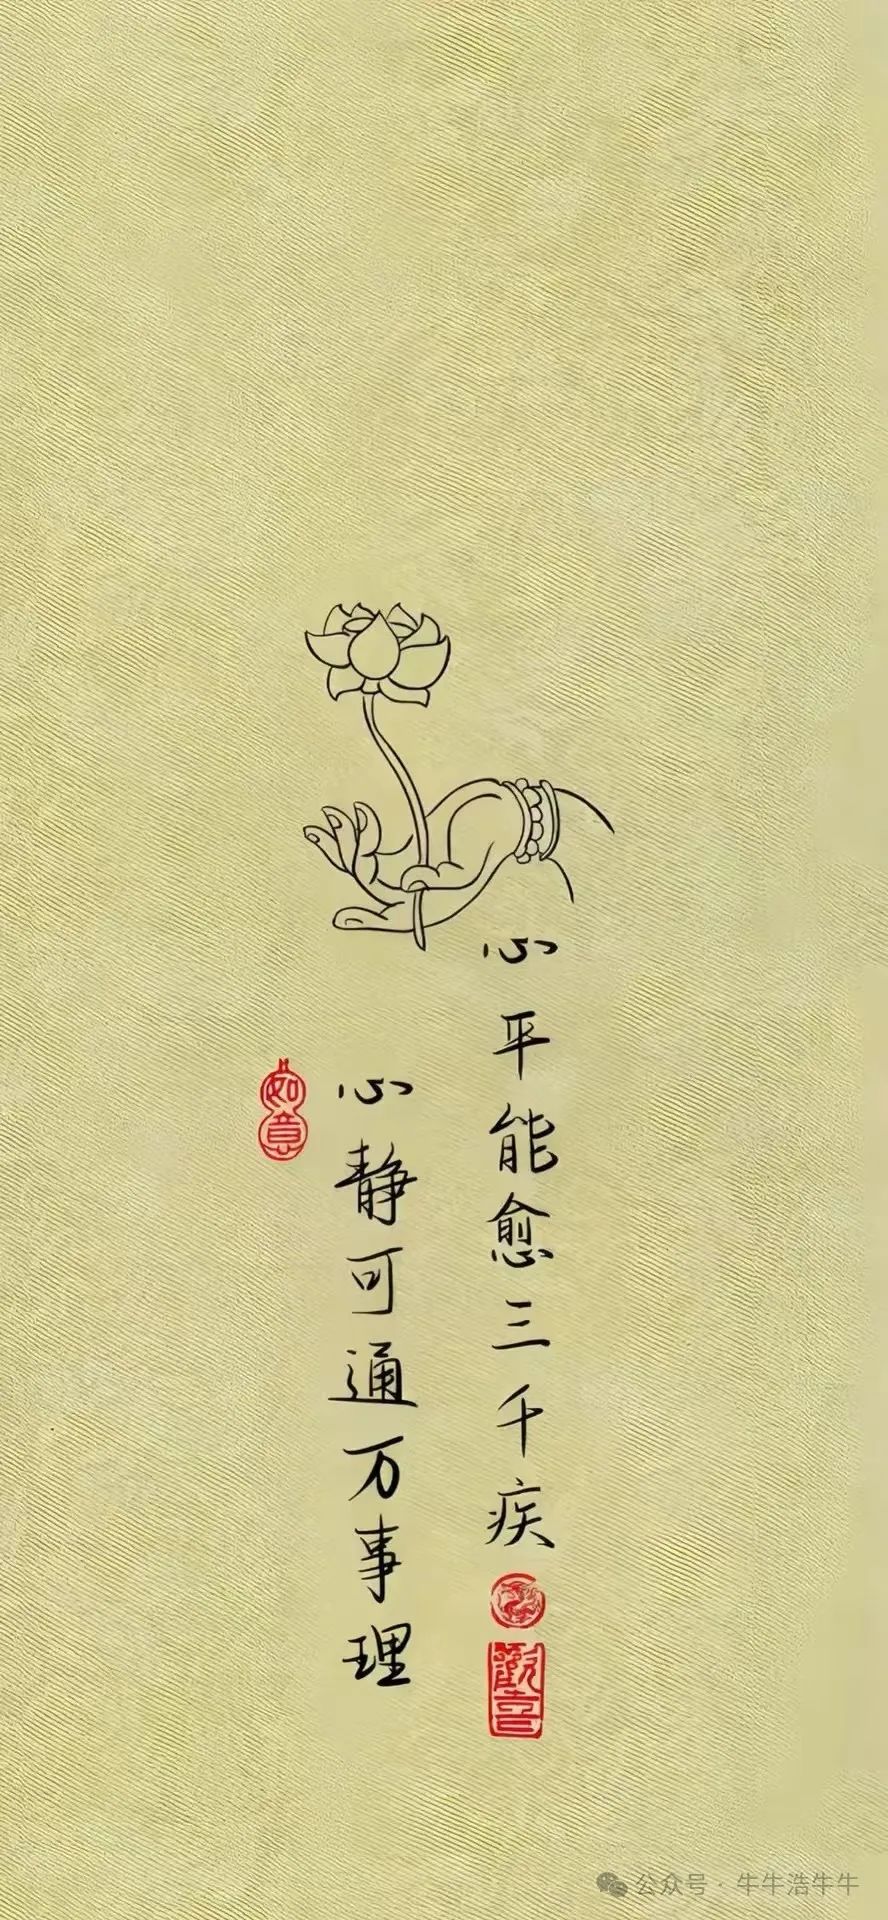 心平能愈三千疾
心静可通万事理
如意
觀音
公众号 · 牛牛浩牛牛